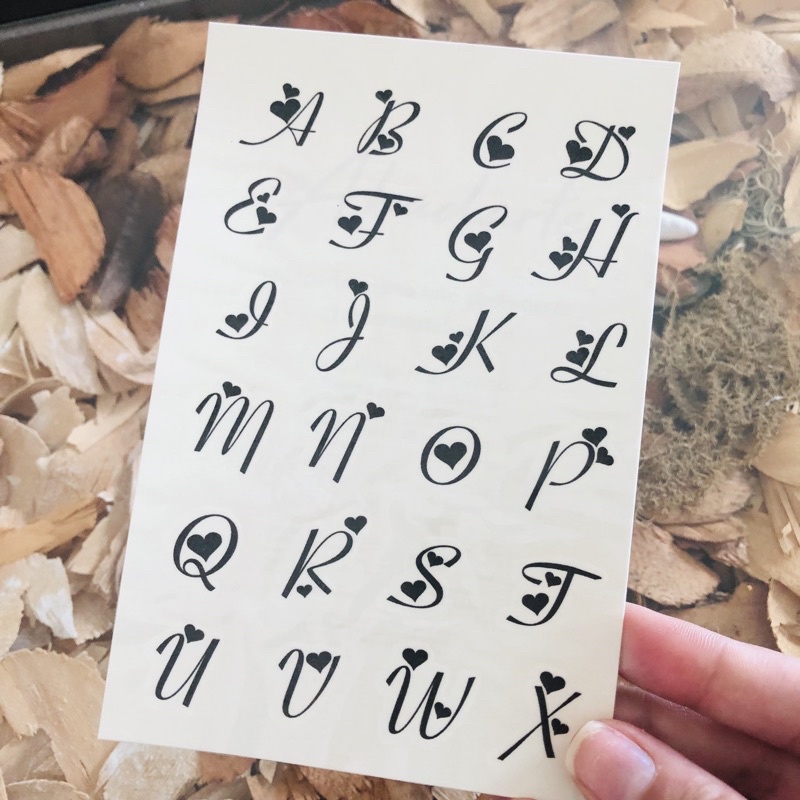 A B C D
E F G H
I J K L
M N O P
Q R S T
U V W X